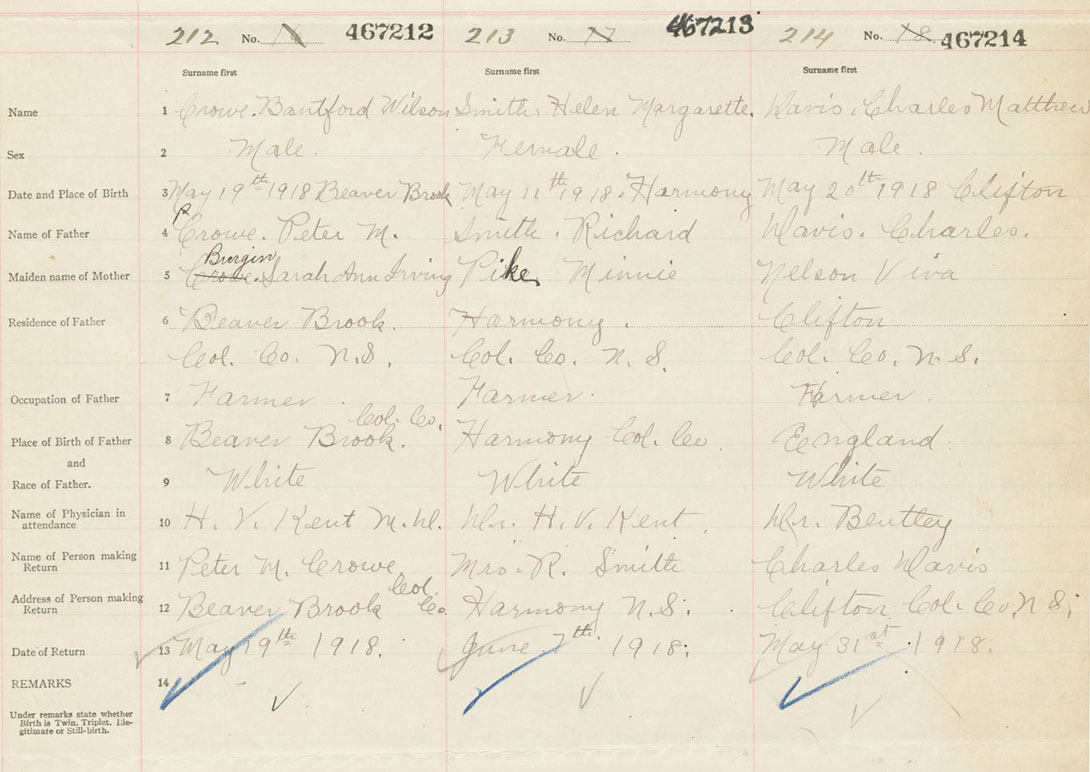 212 No. 16 467212 213 No. 17 467213 214 No. 18 467214
Surname first Surname first Surname first
Name 1 Crowe. Bantford Wilson Smith, Helen Margarette. Davis. Charles Matthew
Sex 2 Male. Female. Male.
Date and Place of Birth 3 May 19th 1918 Beaver Brook May 11th 1918. Harmony May 20th 1918 Clifton
Name of Father 4 Crowe. Peter M. Smith. Richard Davis. Charles.
Burgin
Maiden name of Mother 5 Crowe. Sarah Ann Irving Pike Minnie Nelson Viva
Residence of Father 6 Beaver Brook. Harmony. Clifton
Col. Co. N.S. Col. Co. N.S. Col. Co. N.S.
Occupation of Father 7 Farmer. Farmer. Farmer.
Col. Co.
Place of Birth of Father 8 Beaver Brook. Harmony Col. Co England.
and
Race of Father. 9 White White White
Name of Physician in
attendance 10 H. V. Kent M.D. Dr. H. V. Kent. Dr. Bentley
Name of Person making
Return 11 Peter M. Crowe Mrs. R. Smith Charles Davis
Col.
Address of Person making
Return 12 Beaver Brook Co. Harmony N.S. Clifton Col. Co. N.S.
Date of Return 13 May 19th 1918. June 7th 1918. May 31st 1918.
REMARKS 14
Under remarks state whether
Birth is Twin, Triplet, Ille-
gitimate or Still-birth.